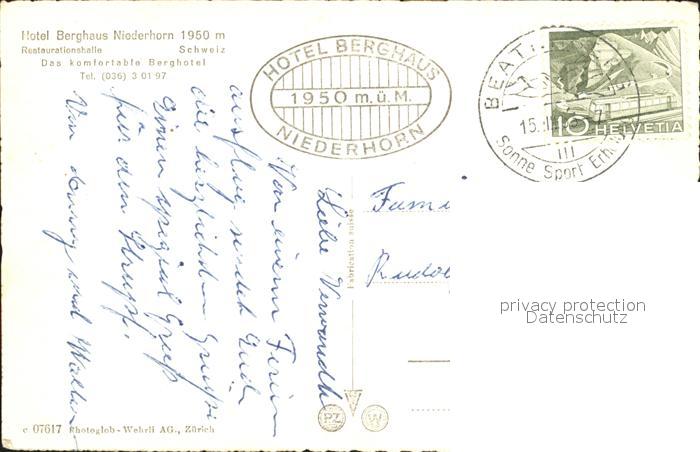 Hotel Berghaus Niederhorn 1950 m
Restaurationshalle Schweiz
Das komfortable Berghotel
Tel. (036) 3 01 97
HOTEL BERGHAUS
1950 m.ü.M.
NIEDERHORN
BEAT
15.
III
Sonne Sport Erh
10 HELVETIA
Liebe Verwandte
Von einem Ferien
ausflug sendet Euch
die herzlichsten Grüsse
Einen spezial Gruss
für den
Von und Walter
Fami
Rudol
Fabrication suisse
PZ W
c 07617 Photoglob-Wehrli AG., Zürich
privacy protection
Datenschutz